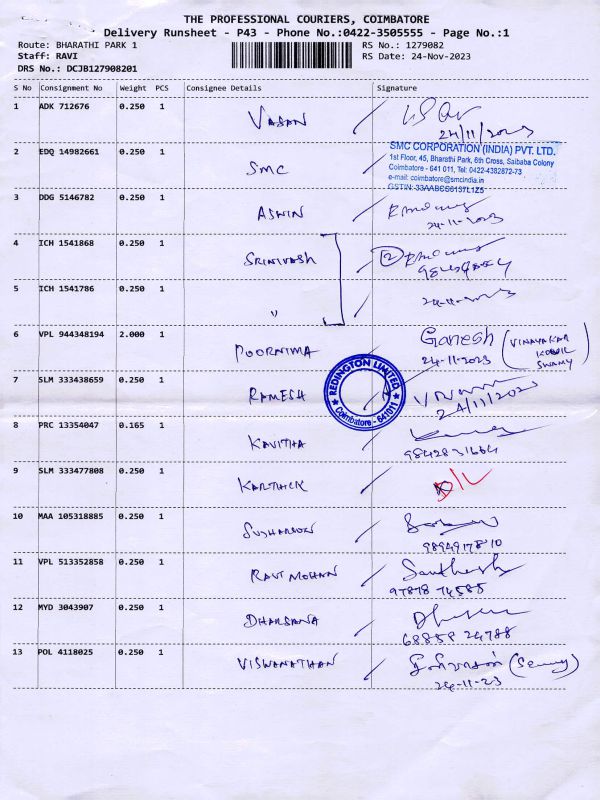 THE PROFESSIONAL COURIERS, COIMBATORE
Delivery Runsheet - P43 - Phone No.:0422-3505555 - Page No.:1
Route: BHARATHI PARK 1 RS No.: 1279082
Staff: RAVI RS Date: 24-Nov-2023
DRS No.: DCJB127908201
S No Consignment No Weight PCS Consignee Details Signature
1 ADK 712676 0.250 1 VASAN
24/11/2023
2 EDQ 14982661 0.250 1 SMC
SMC CORPORATION (INDIA) PVT. LTD.
1st Floor, 45, Bharathi Park, 6th Cross, Saibaba Colony
Coimbatore - 641 011, Tel: 0422-4382872-73
e-mail: coimbatore@smcindia.in
GSTIN: 33AABCS8137L1Z5
3 DDG 5146782 0.250 1 ASWIN
24-11-2023
4 ICH 1541868 0.250 1 SRINIVASH
2
5 ICH 1541786 0.250 1 "
24-11-2023
6 VPL 944348194 2.000 1 POORNIMA Ganesh
24-11-2023
(VINAYAKAR
KOVIL
SWAMY)
7 SLM 333438659 0.250 1 RAMESH
REDINGTON LIMITED
Coimbatore - 641011
24/11/2023
8 PRC 13354047 0.165 1 KAVITHA
9842831664
9 SLM 333477808 0.250 1 KARTHICK D/L
10 MAA 105318885 0.250 1 SUDHARSON
9894917810
11 VPL 513352858 0.250 1 RAVI MOHAN Santhosh
97878 74585
12 MYD 3043907 0.250 1 DHARSANA
68858 24788
13 POL 4118025 0.250 1 VISWANATHAN
24-11-23